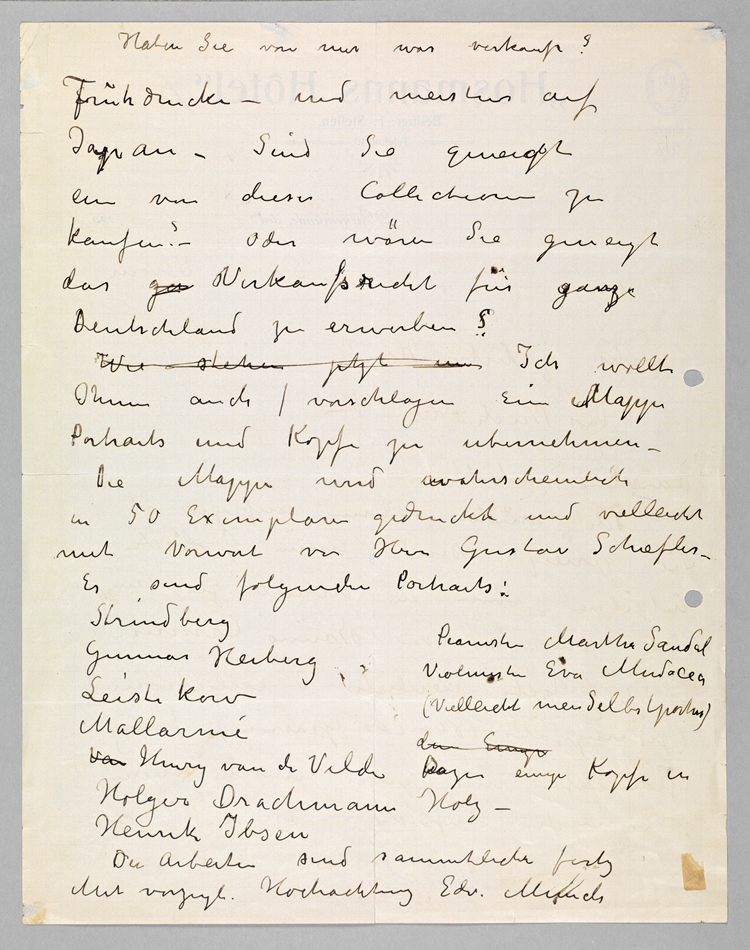 Haben Sie von mir was verkauft?
Frühdrucke – und meistens auf
Japan – Sind Sie geneigt
ein von dieser Collectionen zu
kaufen? – Oder wären Sie geneigt
das Verkaufsrecht für ganze
Deutschland zu erwerben?
Wie stehen jetzt Ich wollte
Ihnen auch vorschlagen Eine Mappe
Portraits und Köpfe zu übernehmen –
Die Mappe wird wahrscheinlich
in 50 Exemplaren gedruckt und vielleicht
mit Vorwort von Herr Gustav Schiefler –
Es sind folgenden Portraits:
Strindberg
Gunnar Heiberg
Leistikow
Mallarmé
Van Henry van de Velde
Holger Drachmann
Henrik Ibsen
Pianistin Martha Sandal
Violinistin Eva Mudocci
(Vielleicht mein Selbstportrait)
den Einige
Dazu einige Köpfe in
Holz –
Die Arbeiten sind sammtliche fertig
Mit vorzügl. Hochachtung Edv. Munch